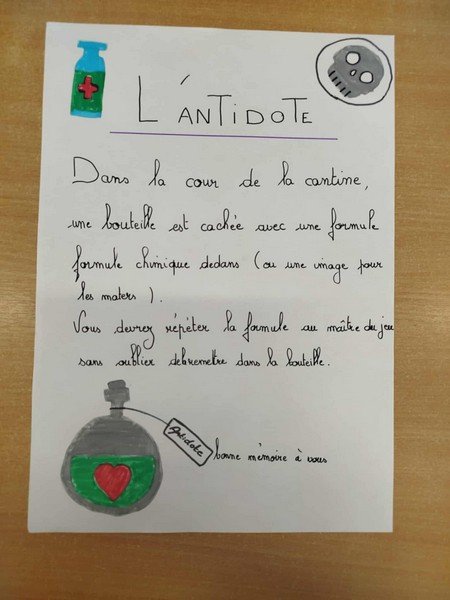 L'ANTIDOTE
Dans la cour de la cantine,
une bouteille est cachée avec une formule
formule chimique dedans (ou une image pour
les maters ).
Vous devrez répéter la formule au maître du jeu
sans oublier debremettre dans la bouteille.
Antidote
bonne mémoire à vous